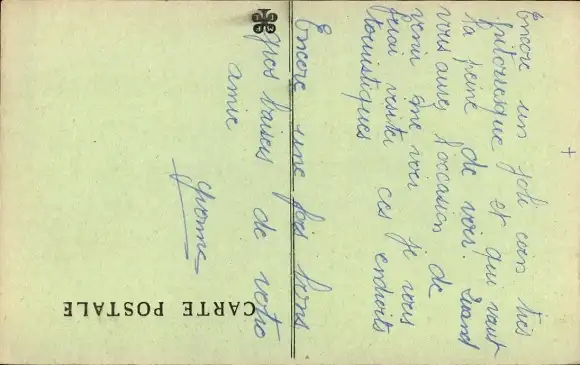 CARTE POSTALE
Encore un joli coin très
pittoresque et qui vaut
la peine de voir. Quand
vous aurez l'occasion de
venir me voir je vous
ferai visiter ces endroits
touristiques
Encore une fois bons
gros baisers de votre
amie
Yvonne